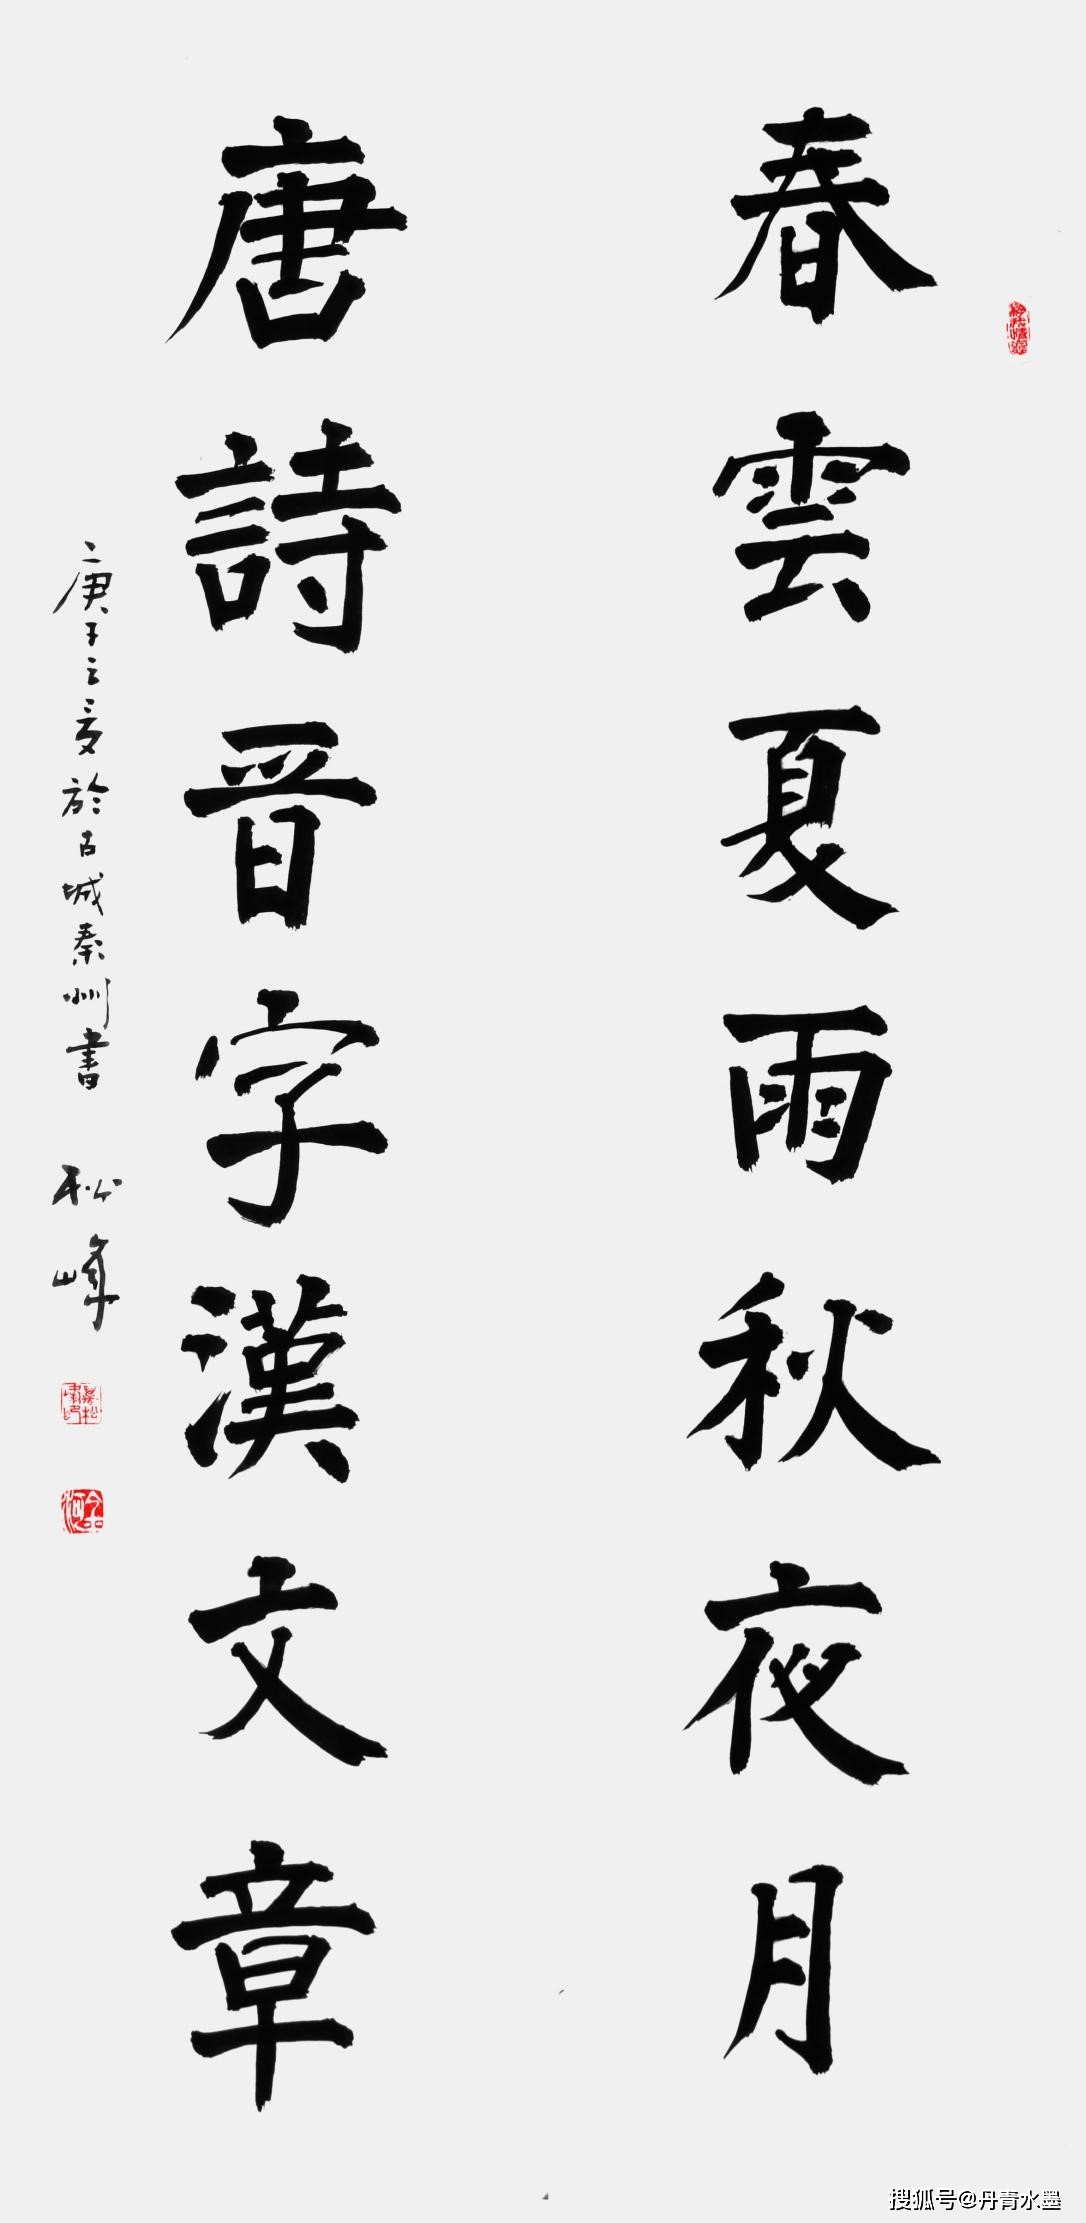 春雲夏雨秋夜月
唐詩晋字漢文章
庚子之夏於古城秦州書
松峰
搜狐号@丹青水墨